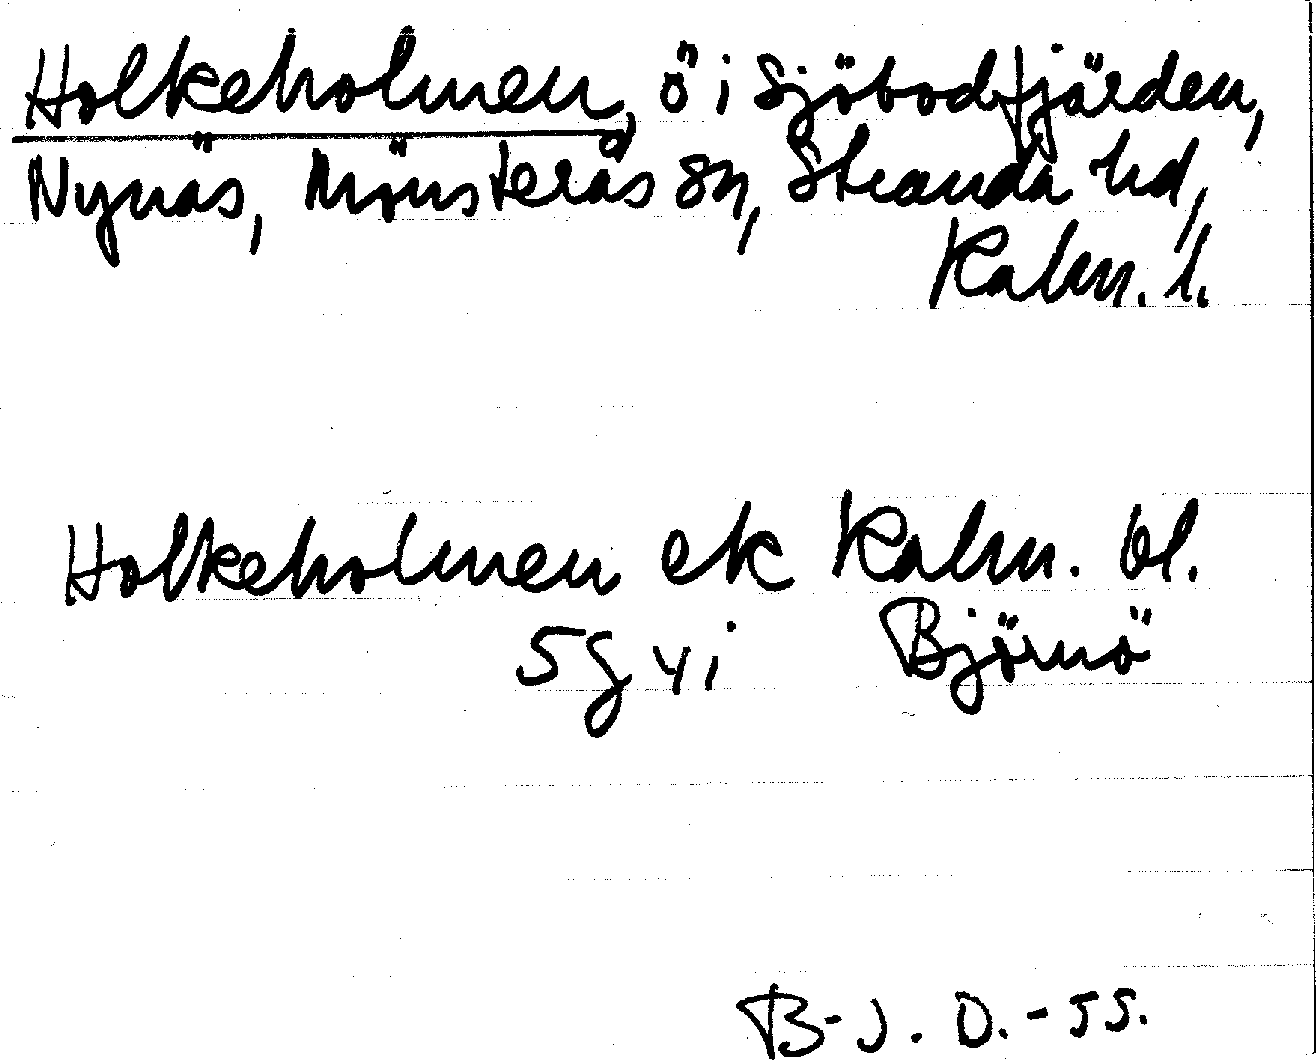 Holkeholmen, ö i Sjöbodfjärden,
Nynäs, Mönsterås sn, Stranda hd,
Kalm. l.
Holkeholmen ek Kalm. bl.
5g yi Björnö
B-J. D. - 55.